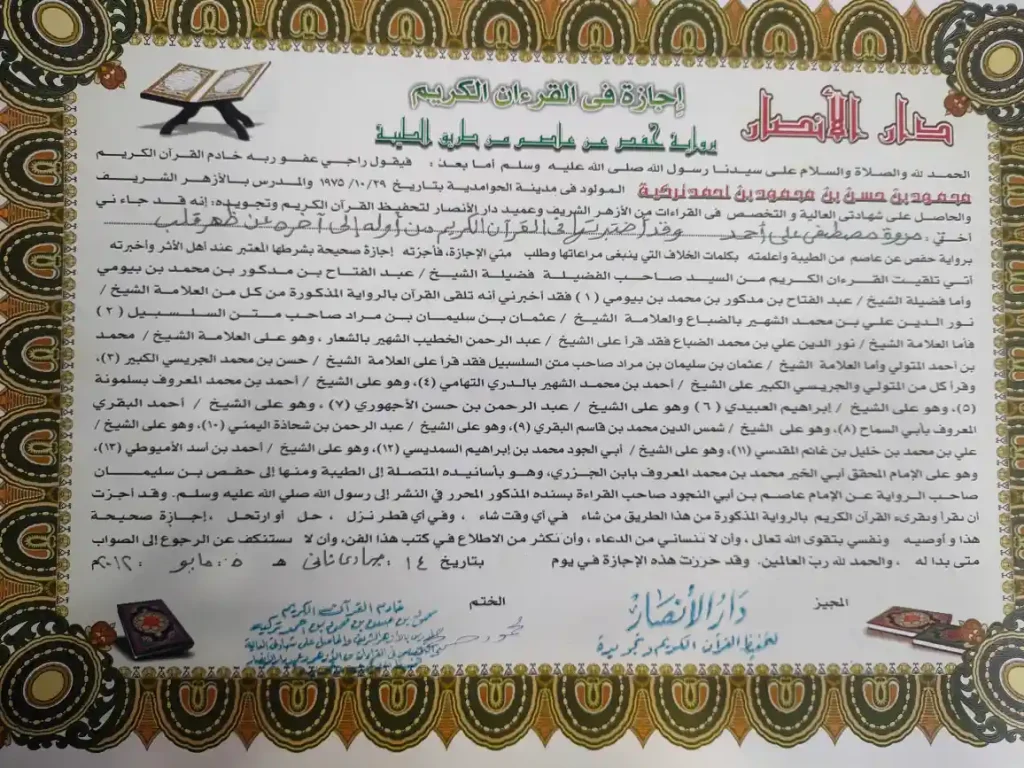 دار الأنصار
إجازة فى القرءان الكريم
برواية حفص عن عاصم من طريق الطيبة
الحمد لله والصلاة والسلام على سيدنا رسول الله صلى الله عليه وسلم أما بعد : فيقول راجي عفو ربه خادم القرآن الكريم
محمود بن حسن بن محمود بن احمد تركية المولود فى مدينة الحوامدية بتاريخ ٢٩/ ١٠/ ١٩٧٥ والمدرس بالأزهر الشريف
والحاصل على شهادتى العالية و التخصص فى القراءات من الأزهر الشريف وعميد دار الأنصار لتحفيظ القرآن الكريم وتجويده: إنه قد جاءني
أختي : مروة مصطفى على أحمد وقد اختبرتها فى القرآن الكريم من أوله إلى آخره عن ظهر قلب
برواية حفص عن عاصم من الطيبة وأعلمته بكلمات الخلاف التي ينبغى مراعاتها وطلب مني الإجازة، فأجزته إجازة صحيحة بشرطها المعتبر عند أهل الأثر وأخبرته
أنى تلقيت القرءان الكريم من السيد صاحب الفضيلة فضيلة الشيخ / عبد الفتاح بن مدكور بن محمد بن بيومي
وأما فضيلة الشيخ / عبد الفتاح بن مدكور بن محمد بن بيومي (١) فقد أخبرني أنه تلقى القرآن بالرواية المذكورة من كل من العلامة الشيخ /
نور الدين علي بن محمد الشهير بالضباع والعلامة الشيخ / عثمان بن سليمان بن مراد صاحب متن السلسبيل (٢)
فأما العلامة الشيخ / نور الدين علي بن محمد الضباع فقد قرأ على الشيخ / عبد الرحمن الخطيب الشهير بالشعار ، وهو على العلامة الشيخ / محمد
بن أحمد المتولي وأما العلامة الشيخ / عثمان بن سليمان بن مراد صاحب متن السلسبيل فقد قرأ على العلامة الشيخ / حسن بن محمد الجريسي الكبير (٣)،
وقرأ كل من المتولي والجريسي الكبير على الشيخ / أحمد بن محمد الشهير بالدري التهامي (٤)، وهو على الشيخ / أحمد بن محمد المعروف بسلمونة
(٥)، وهو على الشيخ / إبراهيم العبيدي (٦) وهو على الشيخ / عبد الرحمن بن حسن الأجهوري (٧) ، وهو على الشيخ / أحمد البقري
المعروف بأبي السماح (٨)، وهو على الشيخ / شمس الدين محمد بن قاسم البقري (٩)، وهو على الشيخ / عبد الرحمن بن شحاذة اليمني (١٠)، وهو على الشيخ /
علي بن محمد بن خليل بن غانم المقدسي (١١)، وهو على الشيخ / أبي الجود محمد بن إبراهيم السمديسي (١٢)، وهو على الشيخ / أحمد بن أسد الأميوطي (١٣)،
وهو على الإمام المحقق أبي الخير محمد بن محمد المعروف بابن الجزري، وهو بأسانيده المتصلة إلى الطيبة ومنها إلى حفص بن سليمان
صاحب الرواية عن الإمام عاصم بن أبي النجود صاحب القراءة بسنده المذكور المحرر في النشر إلى رسول الله صلي الله عليه وسلم. وقد أجزت
أن يقرأ ويقرىء القرآن الكريم بالرواية المذكورة من هذا الطريق من شاء في أي وقت شاء ، وفي أي قطر نزل ، حل أو ارتحل ، إجازة صحيحة
هذا و أوصيه ونفسي بتقوى الله تعالى ، وأن لا ننساني من الدعاء ، وأن نكثر من الاطلاع في كتب هذا الفن، وأن لا نستنكف عن الرجوع إلى الصواب
متى بدا له ، والحمد لله رب العالمين. وقد حررت هذه الإجازة في يوم بتاريخ ١٤ : جمادى ثانى هـ ٥ : مايو : ٢٠١٢م
المجيز
الختم
دار الأنصار
لتحفيظ القرآن الكريم وتجويده
خادم القرآن الكريم
محمود بن حسن بن محمود بن احمد تركية
المدرس بالأزهر الشريف والحاصل على شهادتى العالية